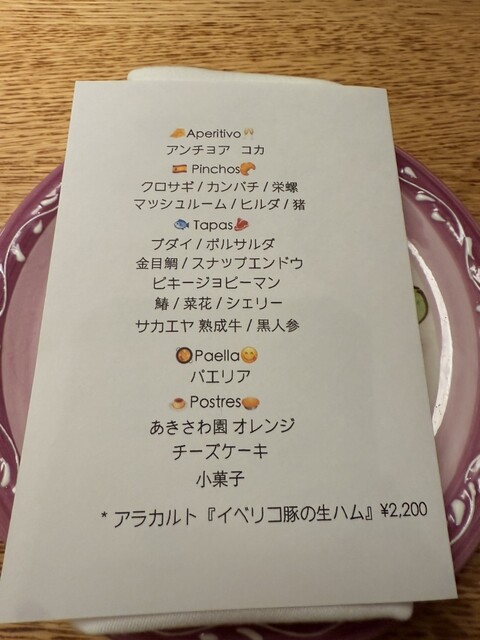 Aperitivo
アンチョア コカ
Pinchos
クロサギ / カンパチ / 栄螺
マッシュルーム / ヒルダ / 猪
Tapas
ブダイ / ボルサルダ
金目鯛 / スナップエンドウ
ピキージョピーマン
鰆 / 菜花 / シェリー
サカエヤ 熟成牛 / 黒人参
Paella
パエリア
Postres
あきさわ園 オレンジ
チーズケーキ
小菓子
* アラカルト『イベリコ豚の生ハム』¥2,200